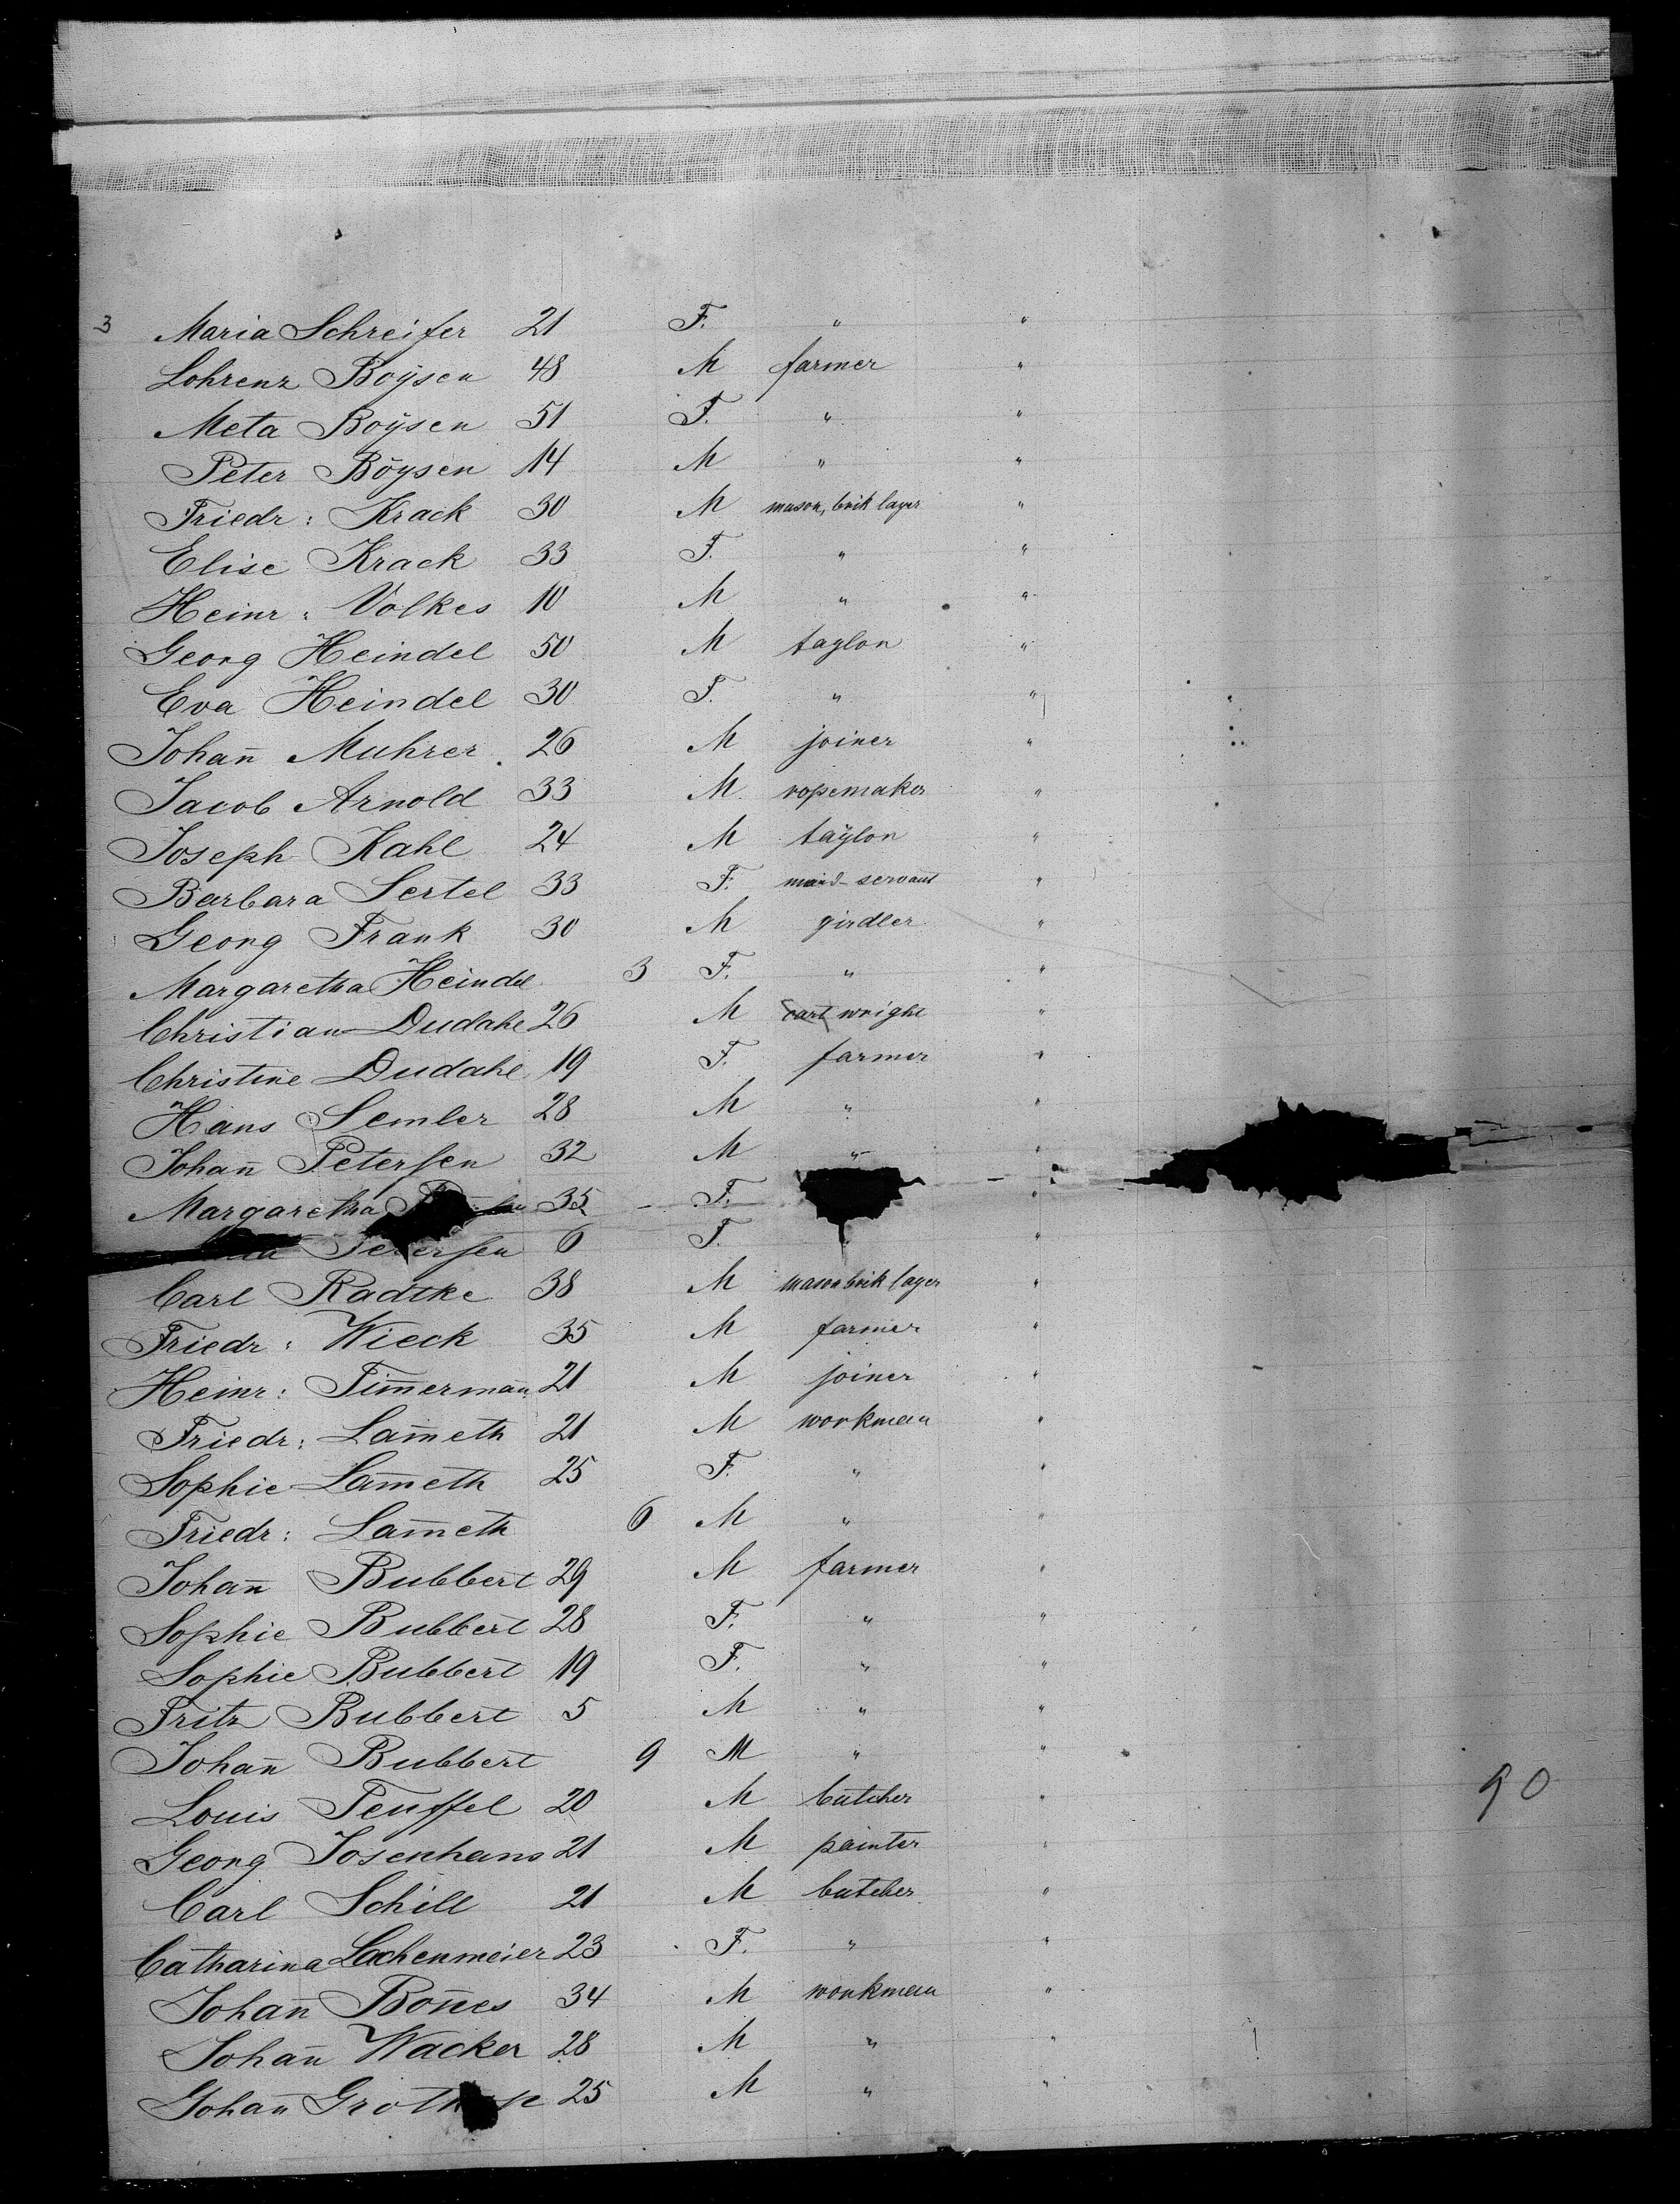 3 Maria Schreifer 21 F. " "
Lohrenz Boÿsen 48 M farmer "
Meta Boÿsen 51 F. " "
Peter Böysen 14 M " "
Friedr: Krack 30 M mason, brik layer "
Elise Krack 33 F. " "
Heinr: Volkes 10 M " "
Georg Heindel 50 M taylor "
Eva Heindel 30 F. " "
Johañ Muhrer. 26 M joiner "
Jacob Arnold 33 M ropemaker "
Joseph Kahl 24 M taÿlor "
Barbara Sertel 33 F. maid-servant "
Georg Frank 30 M girdler "
Margaretha Heindel 3 F. " "
Christian Dudahl 26 M cart wright "
Christine Dudahl 19 F. farmer "
Hans Semler 28 M " "
Johañ Petersen 32 M " "
Margaretha 35 F. "
Petersen 6 F. "
Carl Radtke 38 M mason brik layer "
Friedr: Wieck 35 M farmer "
Heinr: Tim̄ermañ 21 M joiner "
Friedr: Lam̄eth 21 M workman "
Sophie Lam̄eth 25 F. " "
Friedr: Lam̄eth 6 M " "
Johañ Bubbert 29 M farmer "
Sophie Bubbert 28 F. " "
Sophie Bubbert 19 F. " "
Fritz Bubbert 5 M " "
Johañ Bubbert 9 M " "
Louis Teuffel 20 M butcher "
Georg Josenhans 21 M painter "
Carl Schill 21 M butcher "
Catharina Lachenmeier 23 F. " "
Johañ Boñes 34 M workman "
Johañ Wacker 28 M " "
Johañ 25 M " "
90